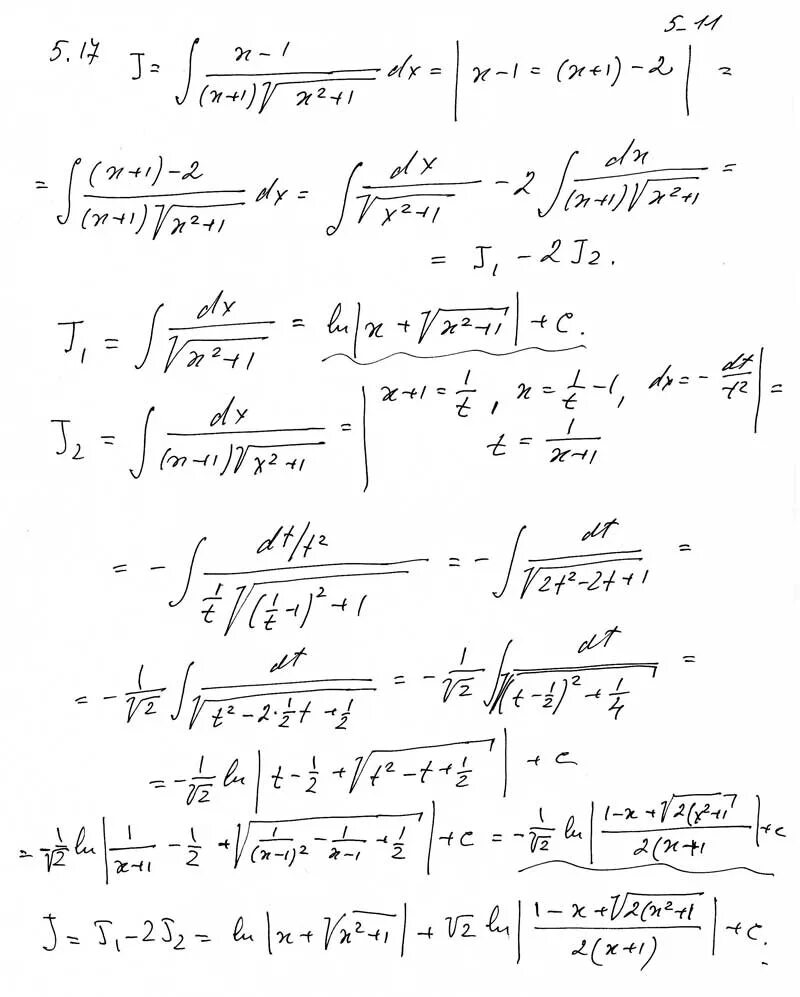 5-11
5.17 J = ∫ (x-1)/((x+1)√(x²+1)) dx = | x-1 = (x+1)-2 | =
= ∫ ((x+1)-2)/((x+1)√(x²+1)) dx = ∫ dx/√(x²+1) - 2 ∫ dx/((x+1)√(x²+1)) =
= J₁ - 2J₂.
J₁ = ∫ dx/√(x²+1) = ln|x + √(x²+1)| + c.
J₂ = ∫ dx/((x+1)√(x²+1)) = | x+1 = 1/t, x = 1/t - 1, dx = - dt/t² | =
t = 1/(x+1)
= - ∫ (dt/t²)/((1/t)√((1/t-1)²+1)) = - ∫ dt/√(2t²-2t+1) =
= - 1/√2 ∫ dt/√(t²-2·(1/2)t+1/2) = - 1/√2 ∫ dt/√((t-1/2)²+1/4) =
= - 1/√2 ln|t - 1/2 + √(t²-t+1/2)| + c
= - 1/√2 ln|1/(x+1) - 1/2 + √(1/(x-1)² - 1/(x-1) + 1/2)| + c = - 1/√2 ln|(1-x+√(2(x²+1))/(2(x+1)| + c
J = J₁ - 2J₂ = ln|x + √(x²+1)| + √2 ln|(1-x+√(2(x²+1))/(2(x+1))| + c.